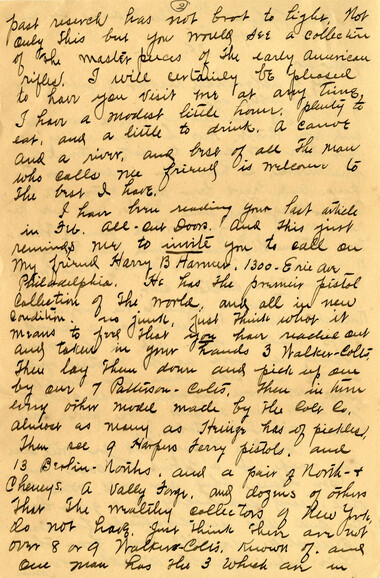 2
past reserch has not brot to light. Not
only this but you would see a collection
of the master pieces of the early American
rifles. I will certainly be pleased
to have you visit me at any time,
I have a modest little home, plenty to
eat, and a little to drink, a canoe
and a river, and best of all the man
who calls me friend is welcome to
the best I have.
I have been reading your last article
in Feb. All-Out Doors. And this just
reminds me to invite you to call on
my friend Harry B Harmer, 1300-Erie Av
Philadelphia. He has the premier pistol
collection of the world, and all in new
condition. no junk, just think what it
means to feel that you have reached out
and taken in your hands 3 Walker-Colts,
then lay them down and pick up one
by our 7 Patterson-Colts, then in turn
every other model made by the Colt Co.
almost as many as Heinz has of pickles,
Then see 9 Harpers Ferry pistols, and
13 Berlin-Norths, and a pair of North-&
Cheneys. A Valley Forge, and dozens of others
that the wealthy collectors of New York,
do not have, just think there are but
over 8 or 9 Walker-Colts, known of. and
one man has the 3 which are in